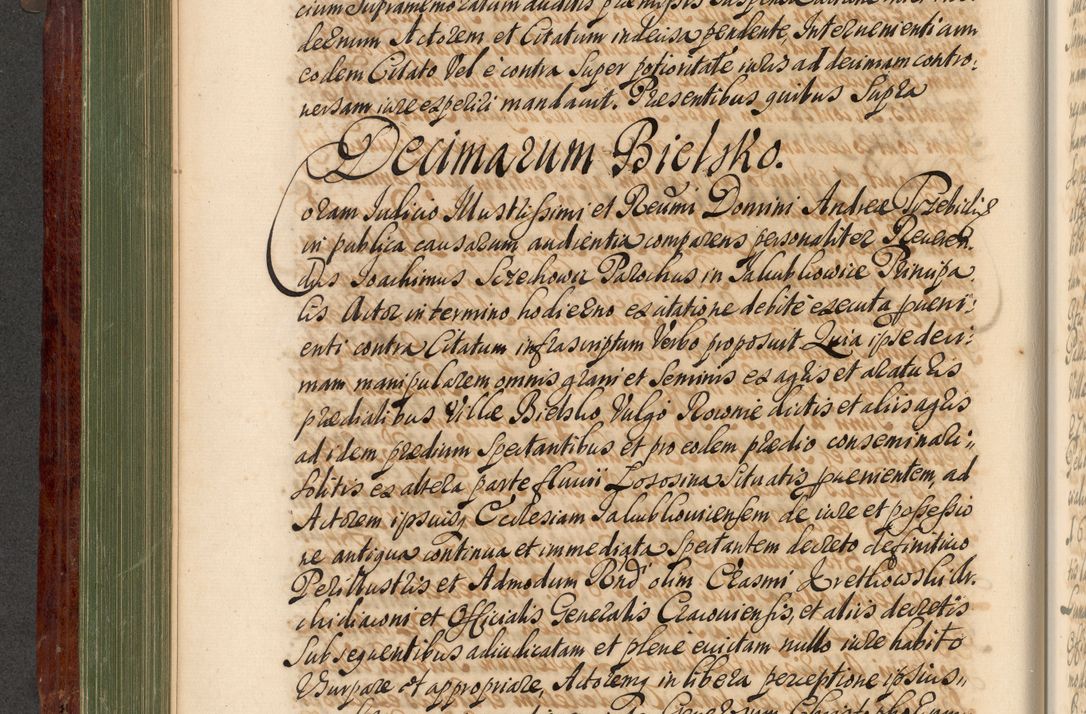 cium Supramemoratum auditis præmissis suspensa
decnum Actorem et Citatum indecisa pendente, Intervenienti cum
eodem Citato Vel è contra Super potioritate iuris ad decimam contro-
versam iure experiri mandavit. Præsentibus quibus Supra
Decimarum Bielsko.
Coram Iudicio Illustrissimi et Reūmi Domini Andreæ Trzebicki &
in publica causarum audientia comparens personaliter Reveren-
dus Ioachimus Strzechowic Parochus in Iakubkowice Principa
lis Actor in termino hodierno ex citatione debitè executa proveni-
enti contra Citatum infrascriptum Verbo proposuit Quia ipse deci-
mam manipularem omnis grani et Seminis ex agris et araturis
prædialibus Villæ Bielsko Vulgò Rownie dictis et aliis agris
ad idem prædium Spectantibus et pro eodem prædio conseminari
solitis ex altera parte fluvii Lososina Situatis provenientem, ad
Actorem ipsiusq Ecclesiam Iakubkoviensem de iure et possessio
ne antiqua continua et immediata Spectantem decreto definitivo
Perillustris et Admodum Rnd̄i olim Erasmi Kretkowski Ar-
chidiaconi et Officialis Generalis Cracoviensis, et aliis decretis
Subsequentibus adiudicatam et plenè evictam nullo iure habito
Usurpare et appropriare, Actoremq in libera perceptione ipsius